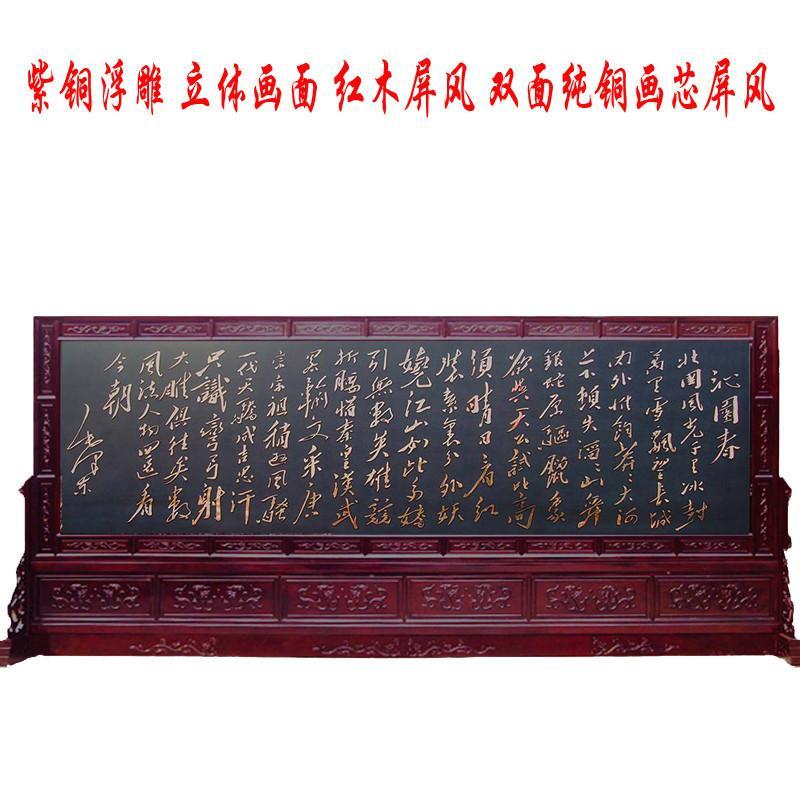 紫铜浮雕 立体画面 红木屏风 双面纯铜画芯屏风
沁園春
北國風光千里冰封
萬里雪飄望長城
内外惟餘莽〻大河
上下頓失滔〻山舞
銀蛇原驅臘象
欲與天公試比高
須晴日看紅
裝素裹分外妖
嬈江山如此多嬌
引無數英雄競
折腰惜秦皇漢武
略輸文采唐
宗宋祖稍遜風騷
一代天驕成吉思汗
只識彎弓射
大雕俱往矣數
風流人物還看
今朝
毛澤東